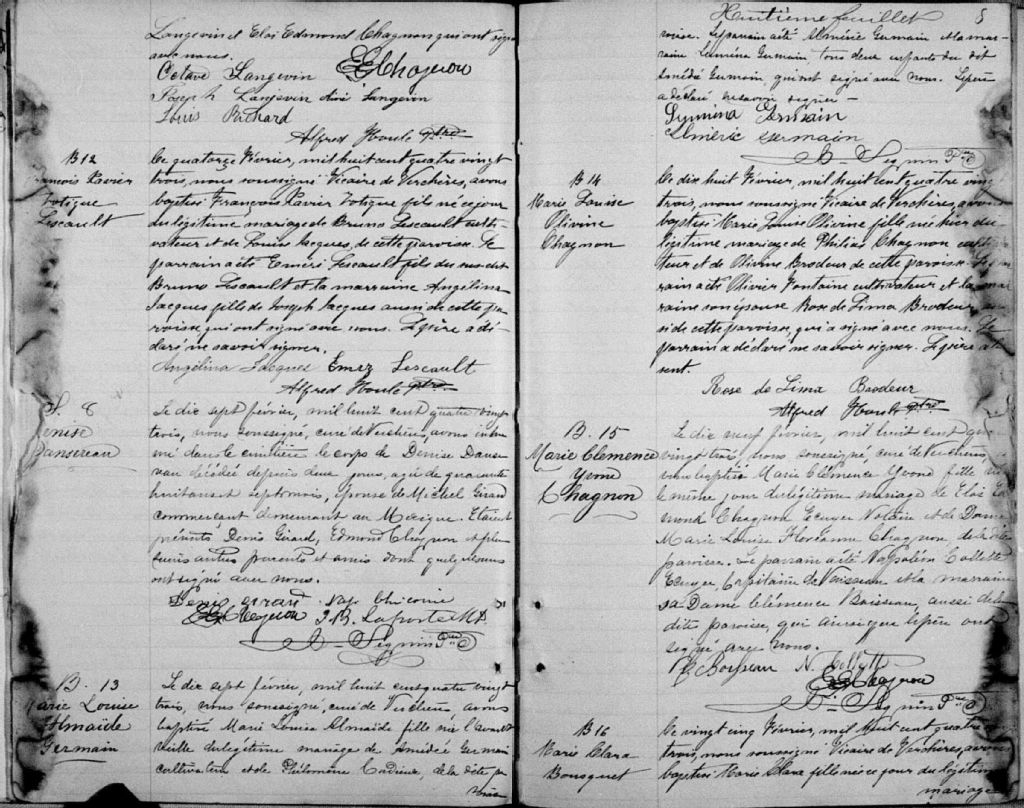 Langevin et Eloi Edmond Chagnon qui ont signé
avec nous.
Octave Langevin EEChagnon
Joseph Langevin Aimé Langevin
Louis Richard
Alfred Houle ptre
B12
François Xavier
Lescault
Ce quatorze Février, mil huit cent quatre vingt
trois, nous soussigné Vicaire de Verchères, avons
baptisé François Xavier fils né ce jour
du légitime mariage de Bruno Lescault culti-
vateur et de Louise Jacques, de cette paroisse. Le
parrain a été Eméri Lescault fils du susdit
Bruno Lescault et la marraine Angélina
Jacques fille de Joseph Jacques aussi de cette pa-
roisse, qui ont signé avec nous. Le père a dé-
claré ne savoir signer.
Angélina Jacques Emery Lescault
Alfred Houle ptre
S. 8
Denise
Dansereau
Le dix sept février, mil huit cent quatre vingt
trois, nous soussigné, curé de Verchères, avons inhu-
mé dans le cimetière le corps de Denise Danse-
reau décédée depuis deux jours, agée de quarante
huit ans et sept mois, épouse de Michel Girard
commerçant demeurant au Mexique. Etaient
présents Denis Girard, Edmond Chagnon et plu-
sieurs autres parents et amis dont quelques uns
ont signé avec nous.
Denis Girard Nap. Chicoine
EEChagnon J.B. Laporte M.D.
Séguin Ptre
B. 13
Marie Louise
Almaïde
Germain
Le dix sept février, mil huit cent quatre vingt
trois, nous soussigné, curé de Verchères avons
baptisé Marie Louise Almaïde fille née l'avant
veille du légitime mariage de Amédée Germain
cultivateur et de Philomène Cadieux, de la dite pa-
roisse
Huitième feuillet 8
roisse. Le parrain a été Almérie Germain et la mar-
raine Luména Germain tous deux enfants du dit
Amédé Germain, qui ont signé avec nous. Le père
a déclaré ne savoir signer -
Luména Germain
Almérie Germain
Séguin Ptre
B14
Marie Louise
Olivine
Chagnon
Ce dix huit Février, mil huit cent quatre vingt
trois, nous soussigné Vicaire de Verchères, avons
baptisé Marie Louise Olivine fille née hier du
légitime mariage de Philias Chagnon culti-
teur et de Olivine Brodeur de cette paroisse. Le par-
rain a été Olivier Fontaine cultivateur et la mar-
raine son épouse Rose de Lima Brodeur, aus-
si de cette paroisse, qui a signé avec nous. Le
parrain a déclaré ne savoir signer. Le père ab-
sent.
Rose de Lima Brodeur
Alfred Houle ptre
B. 15
Marie Clémence
Yvond
Chagnon
Le dix neuf février, mil huit cent quatre
vingt trois, nous soussigné, curé de Verchères,
avons baptisé Marie Clémence Yvond fille née
le même jour du légitime mariage de Eloi Ed-
mond Chagnon Ecuyer Notaire et de Dame
Marie Louise Floreanne Chagnon, de la dite
paroisse. Le parrain a été Napoléon Collette
Ecuyer, Capitaine de Vaisseau et la marraine
sa Dame Clémence Boisseau, aussi de la
dite paroisse, qui ainsi que le père ont
signé avec nous.
C Boisseau N. Collette
EEChagnon
Séguin Ptre
B16
Marie Clara
Bousquet
Ce vingt cinq Février, mil huit cent quatre vingt
trois, nous soussigné Vicaire de Verchères, avons
baptisé Marie Clara fille née ce jour du légitime
mariage